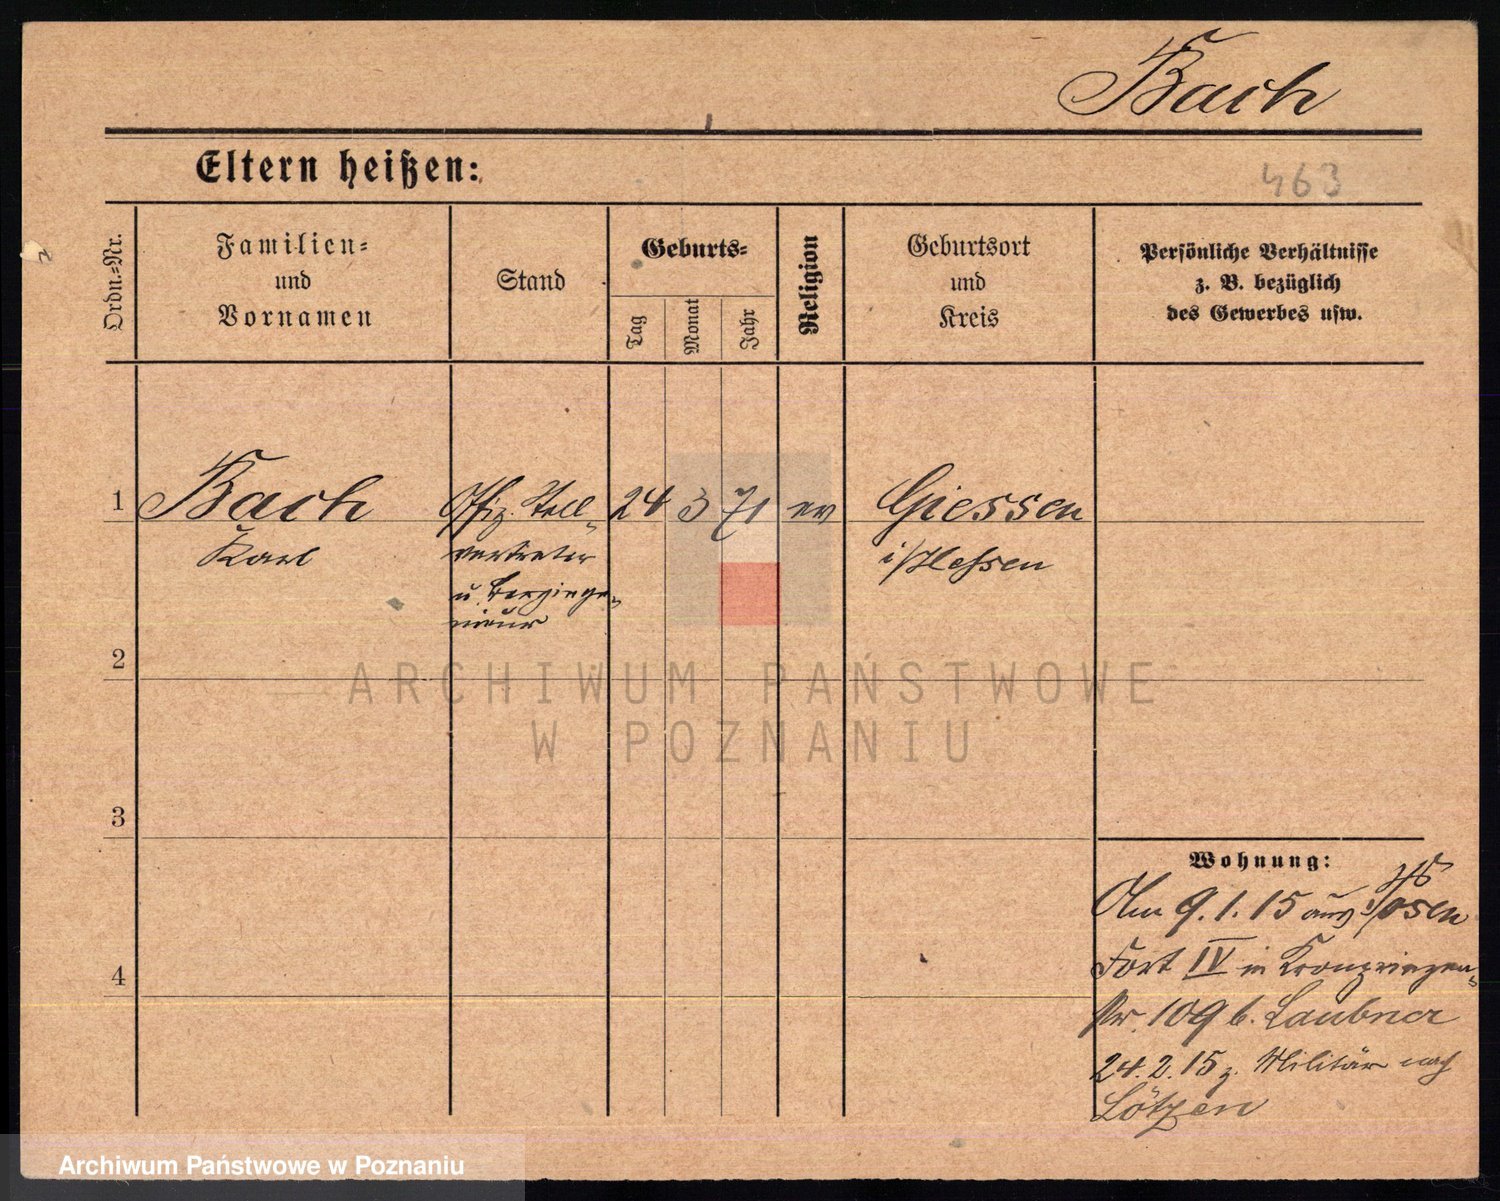 Bach
Eltern heißen:
463
Ordn.=Nr.
Familien=
und
Vornamen
Stand
Geburts=
Tag
Monat
Jahr
Religion
Geburtsort
und
Kreis
Persönliche Verhältnisse
z. B. bezüglich
des Gewerbes usw.
1
Bach
Karl
Offiz. Stell-
vertreter
u. Berginge-
nieur
24
3
71
ev
Giessen
i/Hessen
2
ARCHIWUM PAŃSTWOWE
W POZNANIU
3
Wohnung:
Am 9.1.15 aus Posen
Fort IV in Kronprinzen-
str. 109 b. Laubner
4
24.2.15 z. Militär nach
Lötzen
Archiwum Państwowe w Poznaniu